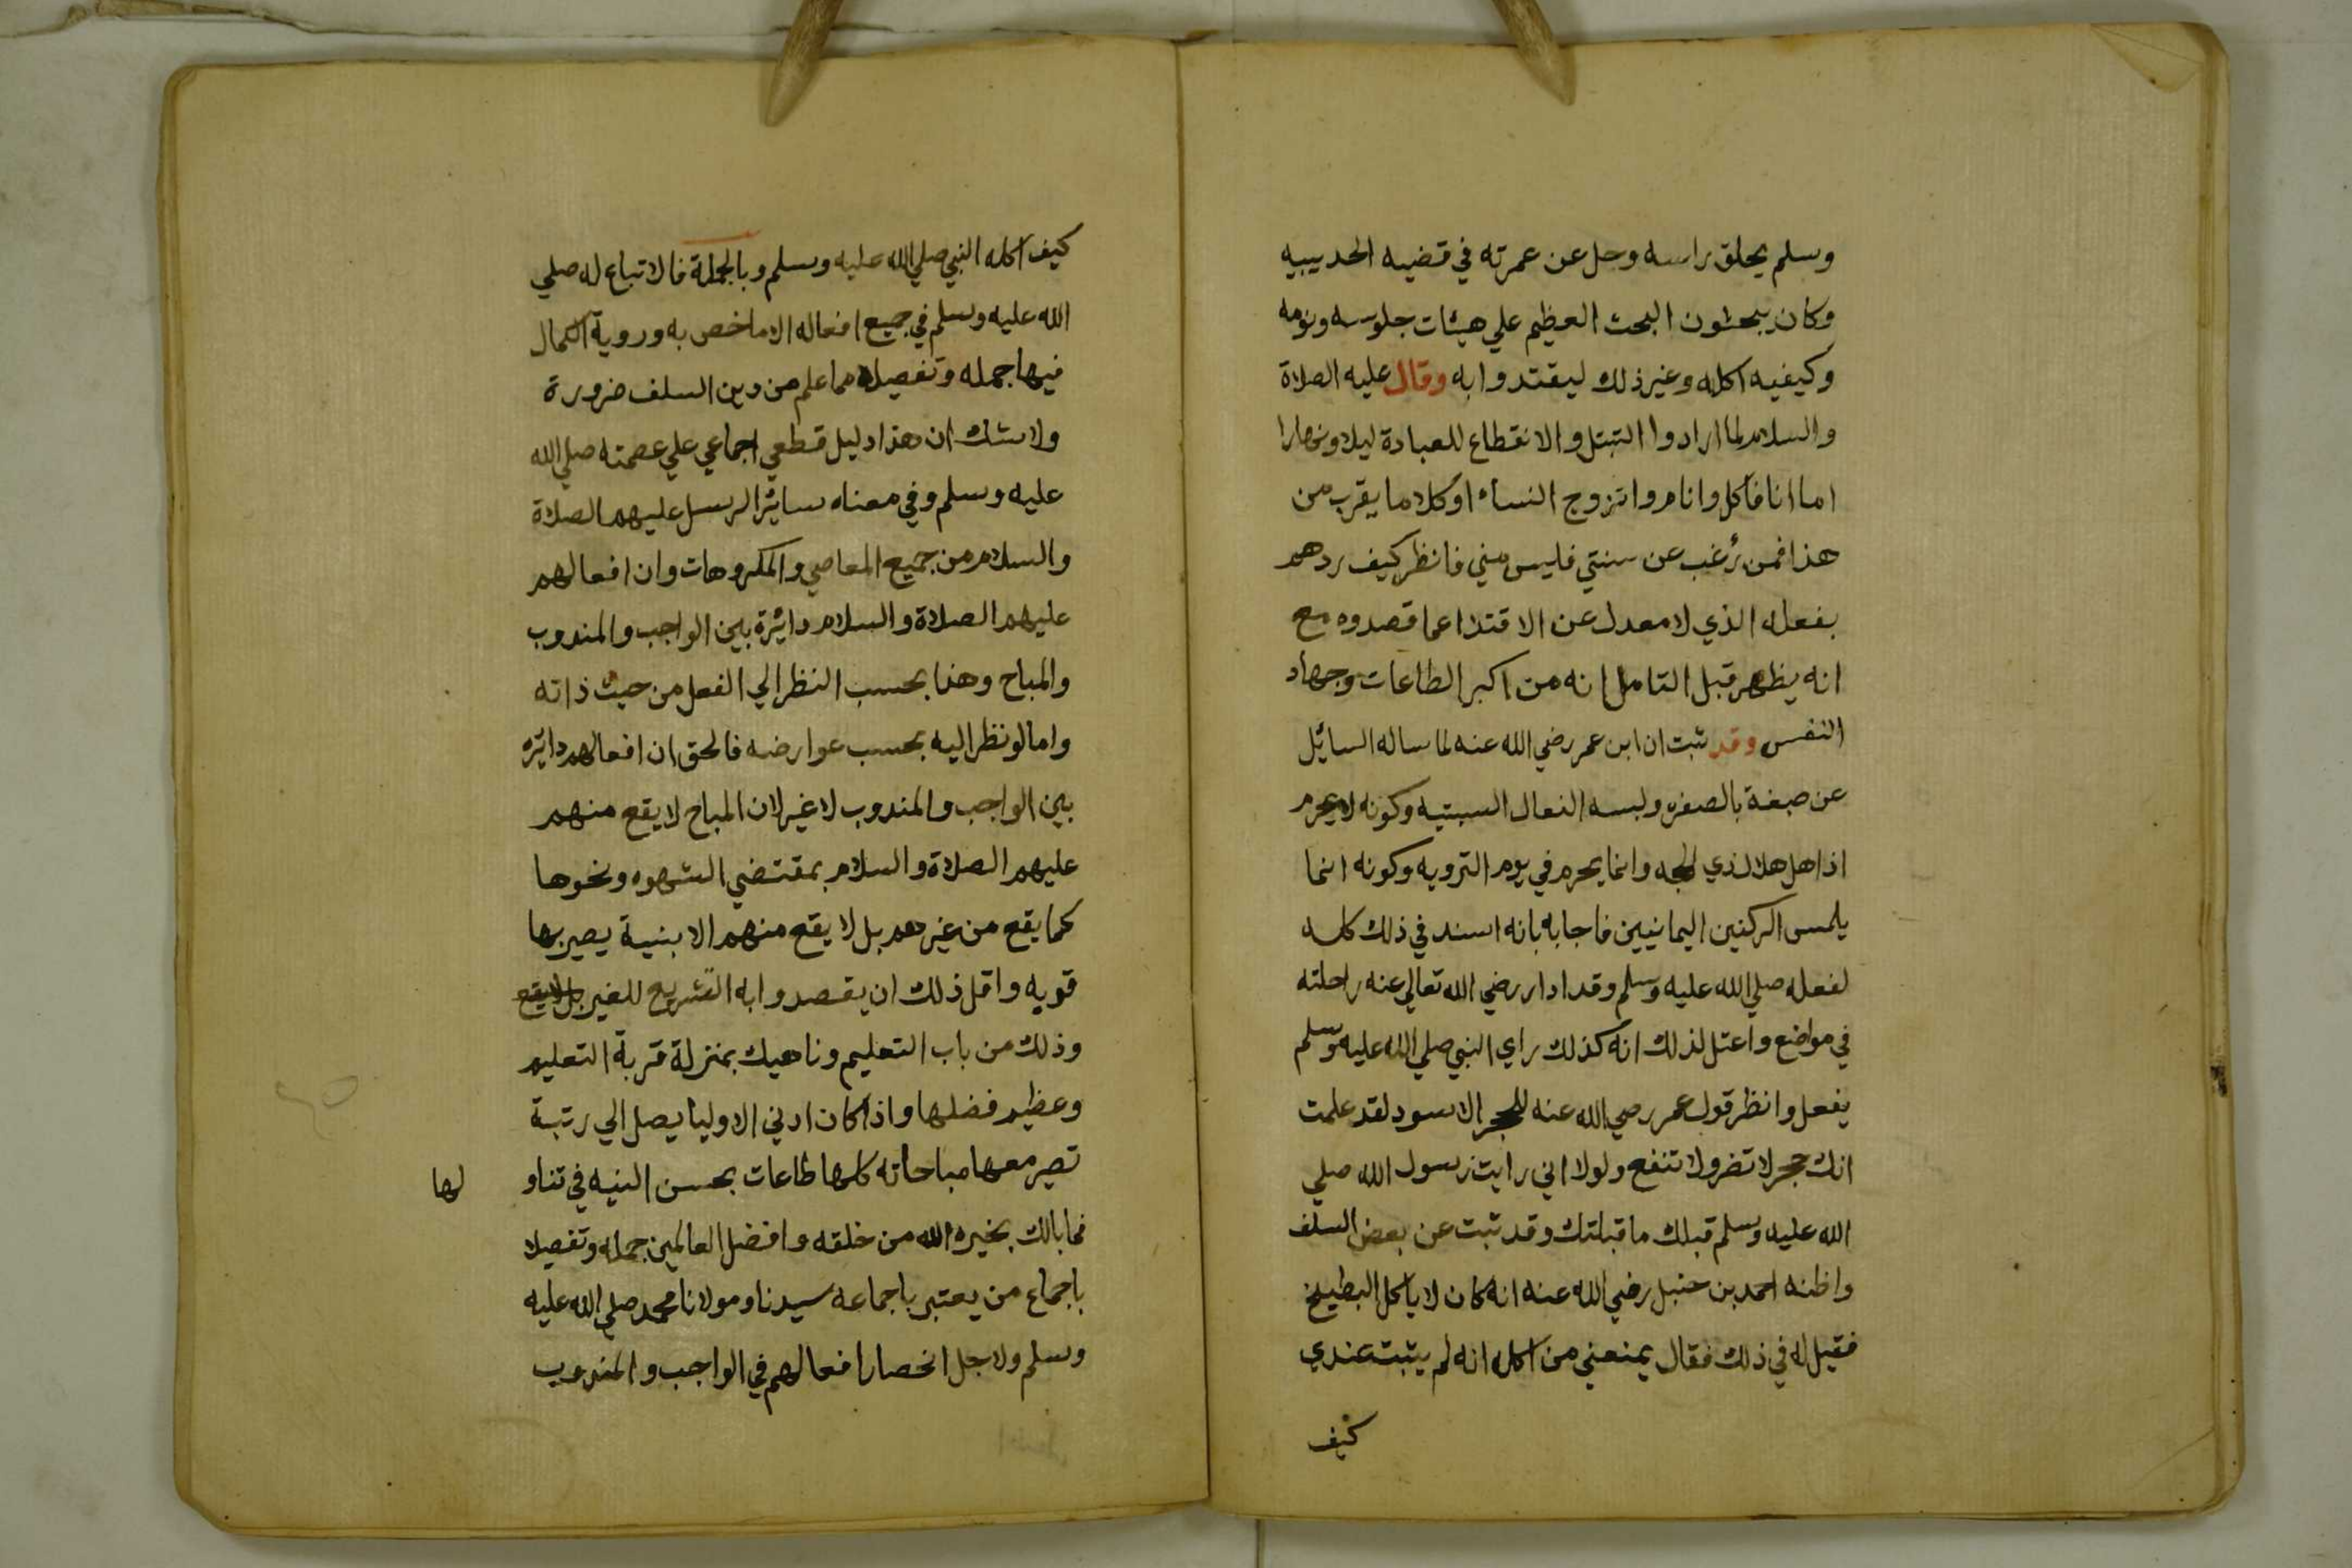 وسلم يحلق راسه وحل عن عمرته في قضيه الحديبيه
وكان يبحثون البحث العظيم علي هيئات جلوسه ونومه
وكيفيه اكله وغير ذلك ليقتدوا به وقال عليه الصلاة
والسلام لما ارادوا التبتل والانقطاع للعبادة ليلا ونهارا
اما انا فاكل وانام واتزوج النساء او كلاما يقرب من
هذا فمن رغب عن سنتي فليس مني فانظر كيف ردهم
بفعله الذي لا معدل عن الاقتدا عما قصدوه مع
انه يظهر قبل التامل انه من اكبر الطاعات وجهاد
النفس وقد ثبت ان ابن عمر رضي الله عنه لما ساله السائل
عن صبغة بالصفره ولبسه النعال السبتيه وكونه لا يحرم
اذا اهل هلال ذي الحجه وانما يحرم في يوم الترويه وكونه انما
يلمس الركنين اليمانيين فاجابه بانه اسند في ذلك كله
لفعله صلي الله عليه وسلم وقد ادار رضي الله تعالي عنه راحلته
في مواضع واعتل لذلك انه كذلك راي النبي صلي الله عليه وسلم
يفعل وانظر قول عمر رضي الله عنه للحجر الاسود لقد علمت
انك حجر لا تضر ولا تنفع ولولا اني رايت رسول الله صلي
الله عليه وسلم قبلك ما قبلتك وقد ثبت عن بعض السلف
واظنه احمد بن حنبل رضي الله عنه انه كان لا ياكل البطيخ
فقيل له في ذلك فقال يمنعني من اكله انه لم يثبت عندي
كيف
كيف اكله النبي صلي الله عليه وسلم وبالجملة فالاتباع له صلي
الله عليه وسلم في جميع افعاله الا ما خص به وروية الكمال
فيها جمله وتفصيلا مما علم من دين السلف ضرورة
ولا شك ان هذا دليل قطعي اجماعي علي عصمته صلي الله
عليه وسلم وفي معناه سائر الرسل عليهم الصلاة
والسلام من جميع المعاصي والمكروهات وان افعالهم
عليهم الصلاة والسلام دائرة بين الواجب والمندوب
والمباح وهذا بحسب النظر الي الفعل من حيث ذاته
واما لو نظر اليه بحسب عوارضه فالحق ان افعالهم دائره
بين الواجب والمندوب لا غير لان المباح لا يقع منهم
عليهم الصلاة والسلام بمقتضي الشهوه ونحوها
كما يقع من غيرهم بل لا يقع منهم الا بنية يصير بها
قويه واقل ذلك ان يقصدوا به التشريع للغير بل لا يقع
وذلك من باب التعليم وناهيك بمنزلة قربة التعليم
وعظيم فضلها واذا كان ادني الاوليا يصل الي رتبة
تصير معها مباحاته كلها طاعات بحسن النيه في تناو
لها
فما بالك بخيره الله من خلقه وافضل العالمين جمله وتفصيلا
باجماع من يعتبر باجماعه سيدنا ومولانا محمد صلي الله عليه
وسلم ولاجل انحصار افعالهم في الواجب والمندوب